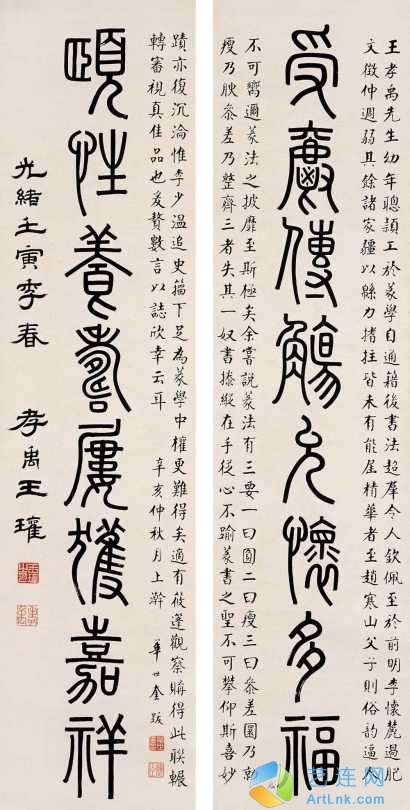 王孝禹先生幼年聰穎工於篆學自通籍後書法超羣今人欽佩至於前明李懷麓過肥
文徵仲週弱其餘諸家彊以緜力搘拄皆未有能屋精華者至趙寒山父子則俗韵逼人
受獻傳觴允懷多福
不可嚮邇篆法之披靡至斯極矣余嘗說篆法有三要一曰圓二曰瘦三曰參差圓乃勁
瘦乃腴參差乃整齊三者失其一奴書掾縱在手從心不踰篆書之聖不可攀仰斯喜妙
蹟亦復沉淪惟李少溫追史籀下足為篆學中權更難得矣適有筱蓬觀察購得此聯輾
轉審視真佳品也爰贅數言以誌欣幸云耳 辛亥仲秋月上澣 華世奎跋
頤性養壽屢獲嘉祥
光緒壬寅季春 孝禹王瓘
艺连网
ArtLnk.Com